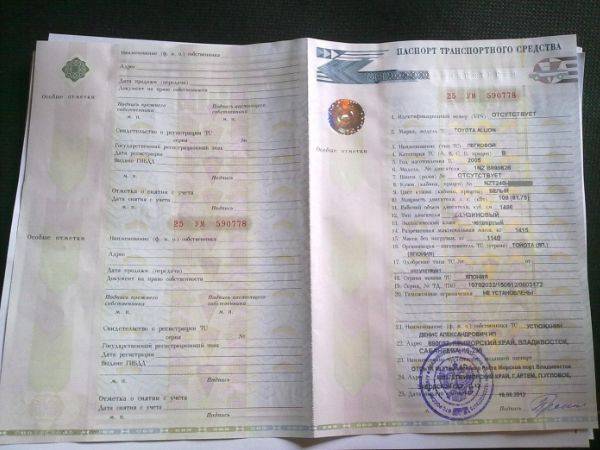 Наименование (ф. и. о.) собственника
Адрес
Дата продажи (передачи)
Документ на право собственности
Особые отметки
Подпись прежнего собственника
Подпись настоящего собственника
м. п.
м. п.
Свидетельство о регистрации ТС
серия №
Государственный регистрационный знак
Дата регистрации
Выдано ГИБДД
Отметка о снятии с учета
Дата снятия с учета
м. п.
Подпись
25 УМ 590778
Особые отметки
Наименование (ф. и. о.) собственника
Адрес
Дата продажи (передачи)
Документ на право собственности
Подпись прежнего собственника
Подпись настоящего собственника
м. п.
м. п.
Свидетельство о регистрации ТС
серия №
Государственный регистрационный знак
Дата регистрации
Выдано ГИБДД
Отметка о снятии с учета
Дата снятия с учета
м. п.
Подпись
ПАСПОРТ ТРАНСПОРТНОГО СРЕДСТВА
25 УМ 590778
Особые отметки
1. Идентификационный номер (VIN) ОТСУТСТВУЕТ
2. Марка, модель ТС TOYOTA ALLION
3. Наименование (тип ТС) ЛЕГКОВОЙ
4. Категория ТС (А, В, С, D, прицеп) B
5. Год изготовления ТС 2008
6. Модель, № двигателя 1NZ
7. Шасси (рама) № ОТСУТСТВУЕТ
8. Кузов (кабина, прицеп) № NZT240-
9. Цвет кузова (кабины, прицепа) БЕЛЫЙ
10. Мощность двигателя, л. с. (кВт)
11. Рабочий объем двигателя, куб. см 1496
12. Тип двигателя БЕНЗИНОВЫЙ
13. Экологический класс ЧЕТВЕРТЫЙ
14. Разрешенная максимальная масса, кг 1415
15. Масса без нагрузки, кг 1140
16. Организация-изготовитель ТС (страна) ТОЙОТА (ЯП.)
(ЯПОНИЯ)
17. Одобрение типа ТС №
от ОТСУТСТВУЕТ
18. Страна вывоза ТС ЯПОНИЯ
19. Серия, № ТД, ТПО
20. Таможенные ограничения НЕ УСТАНОВЛЕНЫ
21. Наименование (ф. и. о.) собственника ТС УСТЮЖАНИН
ДЕНИС АЛЕКСАНДРОВИЧ ИП
22. Адрес ПРИМОРСКИЙ КРАЙ, ВЛАДИВОСТОК,
23. Наименование организации, выдавшей паспорт
поста Морской порт Владивосток
24. Адрес ПРИМОРСКИЙ КРАЙ, Г.АРТЕМ, П.УГЛОВОЕ,
25. Дата выдачи паспорта
м. п.
Подпись